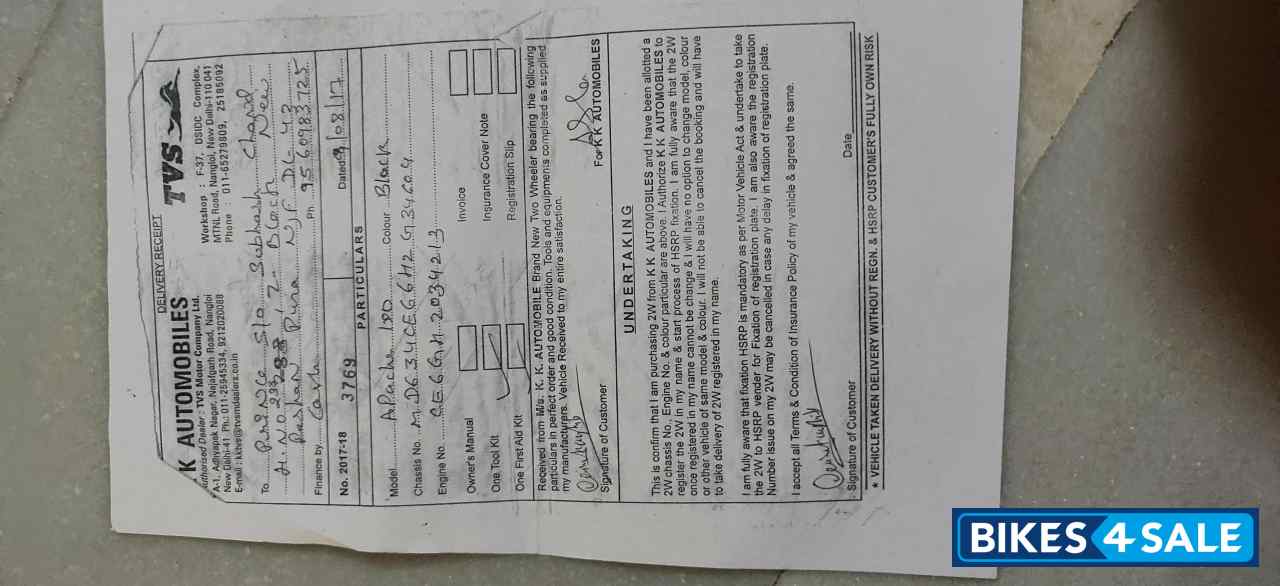 DELIVERY RECEIPT
K AUTOMOBILES
TVS
Authorised Dealer : TVS Motor Company Ltd.
A-1, Adhyapak Nagar, Najafgarh Road, Nangloi
New Delhi-41 Ph.: 011-25945334, 9212020088
E-mail : kktvs@tvsmdealers.co.in
Workshop : F-37, DSIDC Complex,
MTNL Road, Nangloi, New Delhi-110 041
Phone : 011-65279809, 25185092
To Prince S/o Subhash Chand
H. NO. 288, Z- Block New
Roshan Pura N.J.F DL 43
Finance by Cash Ph 9560983725
No. 2017-18 3769 Dated 9/08/17
PARTICULARS
Model Apache 180 Colour Black
Chassis No. MD634CE66H2G34604
Engine No. CE6GH2034213
Owner's Manual Invoice
One Tool Kit Insurance Cover Note
One First Aid Kit Registration Slip
Received from M/s. K. K. AUTOMOBILE Brand New Two Wheeler bearing the following
particulars in perfect order and good condition. Tools and equipments completed as supplied
my manufacturers. Vehicle Received to my entire satisfaction.
Signature of Customer For K K AUTOMOBILES
UNDERTAKING
This is confirm that I am purchasing 2W from K K AUTOMOBILES and I have been allotted a
2W chassis No., Engine No. & colour particular are above. I Authorize K K AUTOMOBILES to
register the 2W in my name & start process of HSRP fixation. I am fully aware that the 2W
once registered in my name cannot be change & I will have no option to change model, colour
or other vehicle of same model & colour. I will not be able to cancel the booking and will have
to take delivery of 2W registered in my name.
I am fully aware that fixation HSRP is mandatory as per Motor Vehicle Act & undertake to take
the 2W to HSRP vender for Fixation of registration plate. I am also aware the registration
Number issue on my 2W may be cancelled in case any delay in fixation of registration plate.
I accept all Terms & Condition of Insurance Policy of my vehicle & agreed the same.
Signature of Customer Date
★ VEHICLE TAKEN DELIVERY WITHOUT REGN. & HSRP CUSTOMER'S FULLY OWN RISK
BIKES4SALE